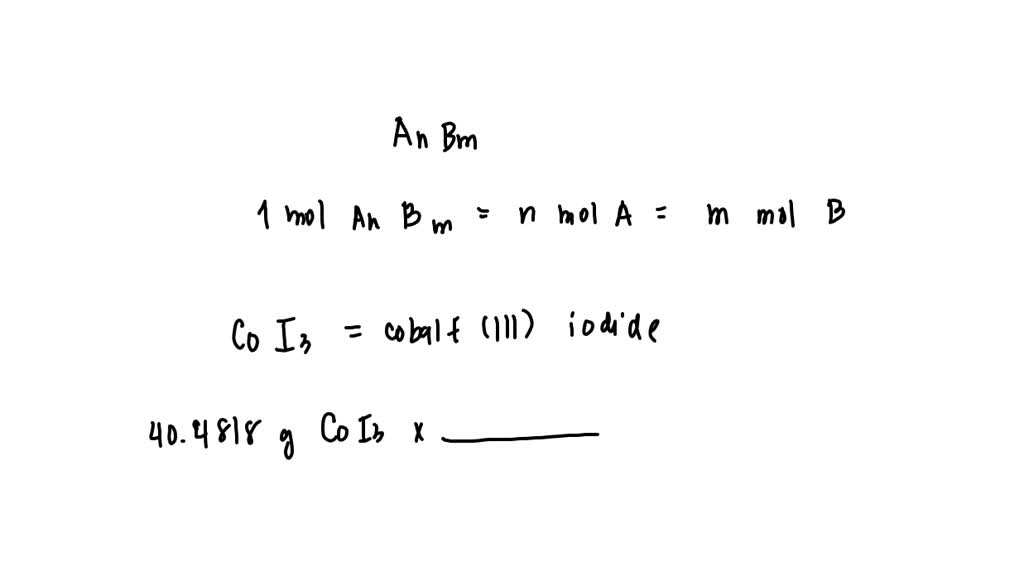 An Bm
1 mol An Bm = n mol A = m mol B
Co I3 = cobalt (III) iodide
40.4818 g CoI3 x